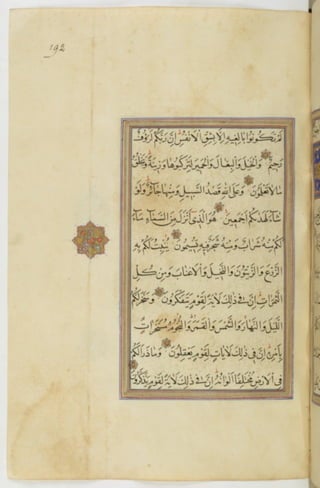 192
لَمْ تَكُونُوا بَالِغِيهِ اِلَّا بِشِقِّ الْاَنْفُسِ اِنَّ رَبَّكُمْ لَرَؤُفٌ
رَحِيمٌ وَالْخَيْلَ وَالْبِغَالَ وَالْحَمِيرَ لِتَرْكَبُوهَا وَزِينَةً وَيَخْلُقُ
مَا لَا تَعْلَمُونَ وَعَلَى اللهِ قَصْدُ السَّبِيلِ وَمِنْهَا جَائِرٌ وَلَوْ
شَاءَ لَهَدٰيكُمْ اَجْمَعِينَ هُوَ الَّذِى اَنْزَلَ مِنَ السَّمَاءِ مَاءً
لَكُمْ مِنْهُ شَرَابٌ وَمِنْهُ شَجَرٌ فِيهِ تُسِيمُونَ يُنْبِتُ لَكُمْ بِهِ
الزَّرْعَ وَالزَّيْتُونَ وَالنَّخِيلَ وَالْاَعْنَابَ وَمِنْ كُلِّ
الثَّمَرَاتِ اِنَّ فِى ذٰلِكَ لَاٰيَةً لِقَوْمٍ يَتَفَكَّرُونَ وَسَخَّرَ لَكُمُ
الَّيْلَ وَالنَّهَارَ وَالشَّمْسَ وَالْقَمَرَ وَالنُّجُومُ مُسَخَّرَاتٌ
بِاَمْرِهِ اِنَّ فِى ذٰلِكَ لَاٰيَاتٍ لِقَوْمٍ يَعْقِلُونَ وَمَا ذَرَاَ لَكُمْ
فِى الْاَرْضِ مُخْتَلِفًا اَلْوَانُهُ اِنَّ فِى ذٰلِكَ لَاٰيَةً لِقَوْمٍ يَذَّكَّرُونَ